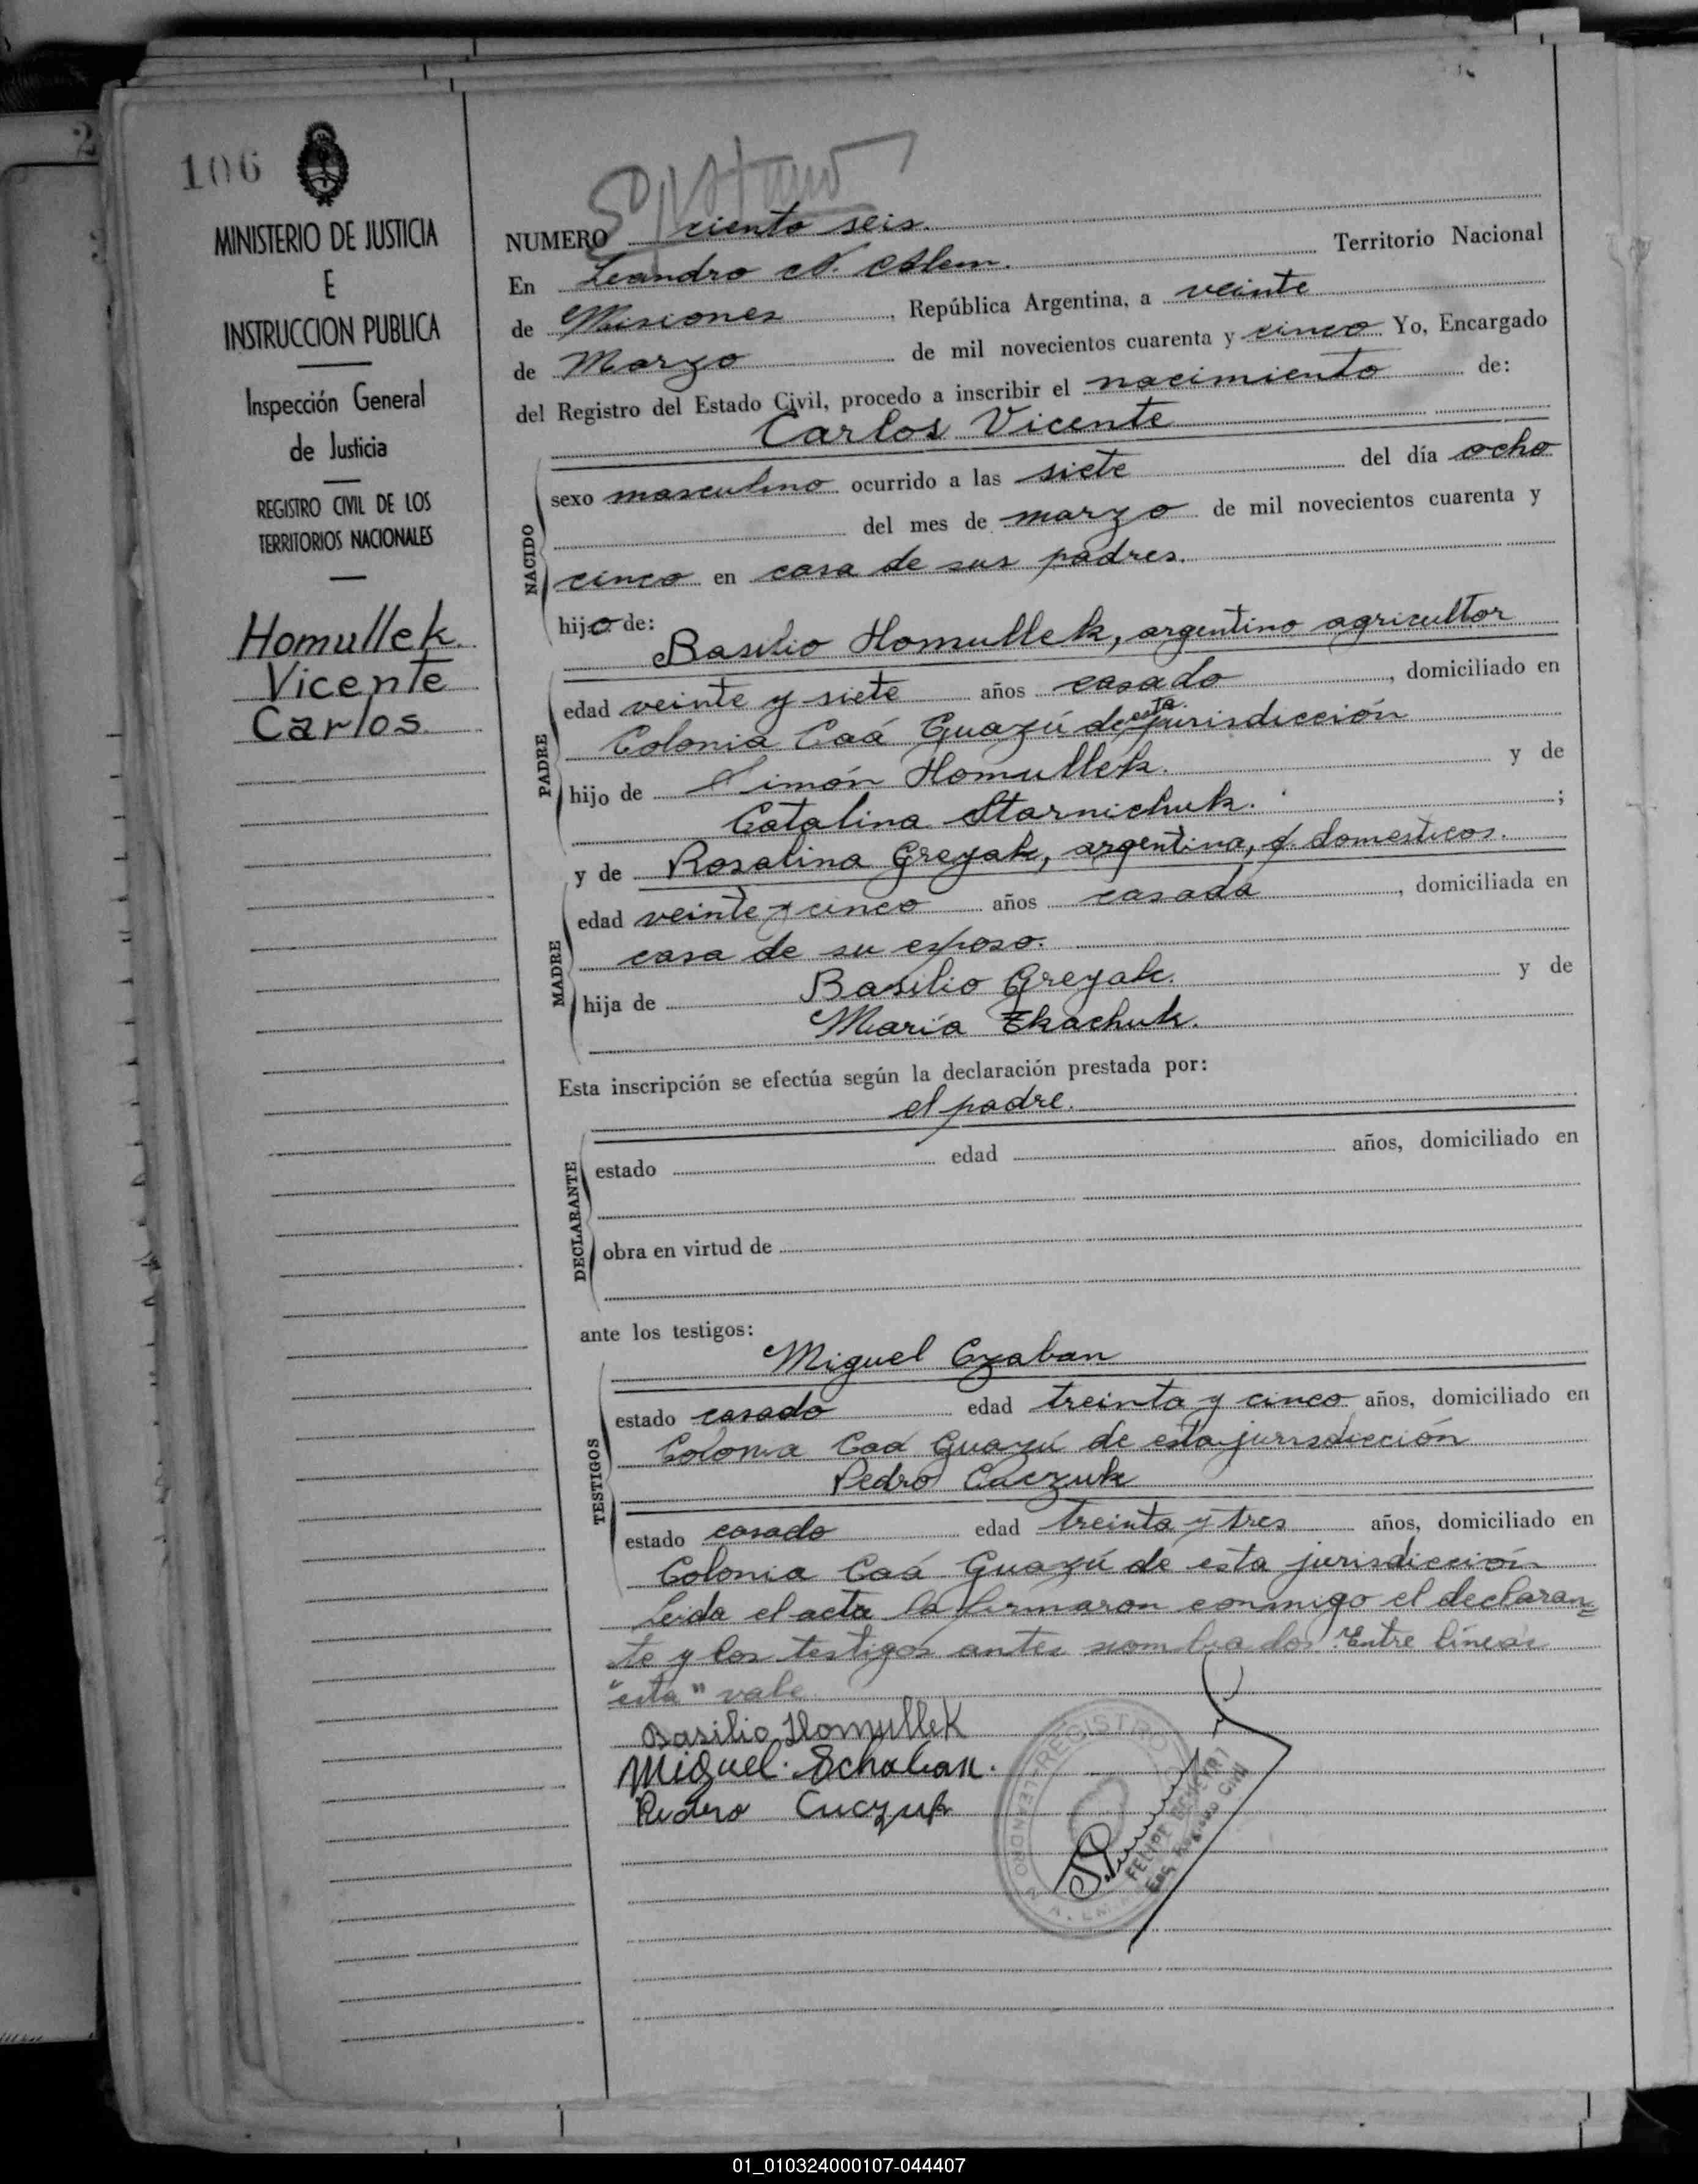 106
MINISTERIO DE JUSTICIA
E
INSTRUCCION PUBLICA
Inspección General
de Justicia
REGISTRO CIVIL DE LOS
TERRITORIOS NACIONALES
Homullek
Vicente
Carlos
NUMERO ciento seis.
En Leandro N. Alem. Territorio Nacional
de Misiones, República Argentina, a veinte
de Marzo de mil novecientos cuarenta y cinco Yo, Encargado
del Registro del Estado Civil, procedo a inscribir el nacimiento de:
Carlos Vicente
NACIDO
sexo masculino ocurrido a las siete del día ocho
del mes de marzo de mil novecientos cuarenta y
cinco en casa de sus padres.
hijo de:
Basilio Homullek, argentino agricultor
PADRE
edad veinte y siete años casado, domiciliado en
Colonia Caá Guazú de esta jurisdicción
hijo de Simón Homullek. y de
Catalina Starnichuk. ;
y de Rosalina Greyak, argentina, q. domesticos.
MADRE
edad veinte y cinco años casada, domiciliada en
casa de su esposo.
hija de Basilio Greyak. y de
María Tkachuk.
Esta inscripción se efectúa según la declaración prestada por:
el padre.
DECLARANTE
estado edad años, domiciliado en
obra en virtud de
ante los testigos:
Miguel Czaban
TESTIGOS
estado casado edad treinta y cinco años, domiciliado en
Colonia Caá Guazú de esta jurisdicción
Pedro Cuczuk
estado casado edad treinta y tres años, domiciliado en
Colonia Caá Guazú de esta jurisdicción
Leida el acta la firmaron conmigo el declaran=
te y los testigos antes nombrados. Entre líneas
"esta" vale.
Basilio Homullek
Miguel Schaban.
Pedro Cuczuk
REGISTRO
LEANDRO N. ALEM
FELIPE
Enc. Registro Civil
01_010324000107-044407